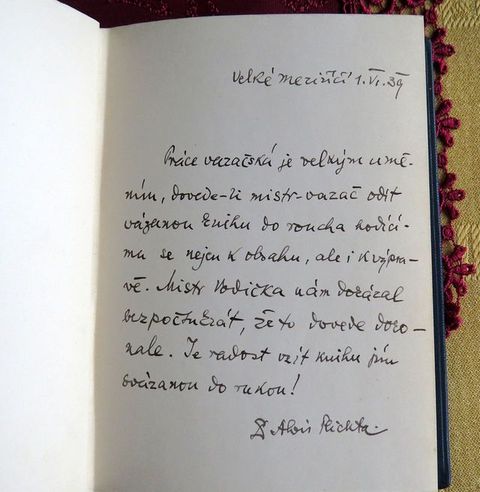 Velké Meziříčí 1.VI.39
Práce vazačská je velkým umě-
ním, dovede-li mistr-vazač odít
vázanou knihu do roucha hodící-
mu se nejen k obsahu, ale i k výpra-
vě. Mistr Vodička nám dokázal
bezpočtukrát, že to dovede doko-
nale. Je radost vzít knihu jím
svázanou do rukou!
Alois Plichta